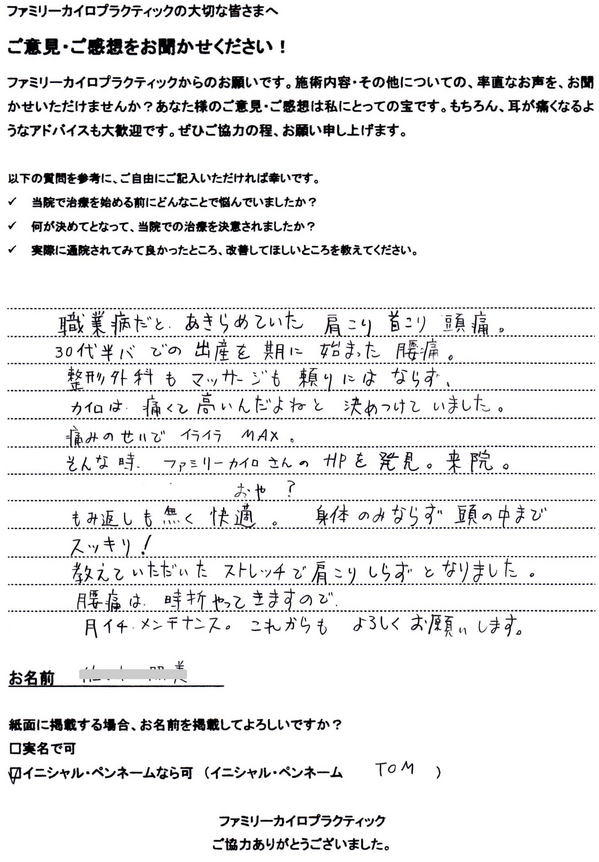 ファミリーカイロプラクティックの大切な皆さまへ
ご意見・ご感想をお聞かせください！
ファミリーカイロプラクティックからのお願いです。施術内容・その他についての、率直なお声を、お聞
かせいただけませんか？あなた様のご意見・ご感想は私にとっての宝です。もちろん、耳が痛くなるよ
うなアドバイスも大歓迎です。ぜひご協力の程、お願い申し上げます。
以下の質問を参考に、ご自由にご記入いただければ幸いです。
✓ 当院で治療を始める前にどんなことで悩んでいましたか？
✓ 何が決めてとなって、当院での治療を決意されましたか？
✓ 実際に通院されてみて良かったところ、改善してほしいところを教えてください。
職業病だと、あきらめていた 肩こり 首こり 頭痛。
30代半バでの出産を期に 始まった 腰痛。
整形外科も マッサージも 頼りには ならず、
カイロは、痛くて高いんだよねと 決めつけていました。
痛みのせいで イライラ MAX。
そんな時、ファミリーカイロさんの HPを発見。来院。
おや？
もみ返しも無く 快適。 身体のみならず 頭の中まで
スッキリ！
教えていただいた ストレッチで肩こりしらずとなりました。
腰痛は、時折やってきますので、
月イチ メンテナンス。これからも よろしくお願いします。
お名前
紙面に掲載する場合、お名前を掲載してよろしいですか？
□実名で可
☑イニシャル・ペンネームなら可 （イニシャル・ペンネーム TOM ）
ファミリーカイロプラクティック
ご協力ありがとうございました。